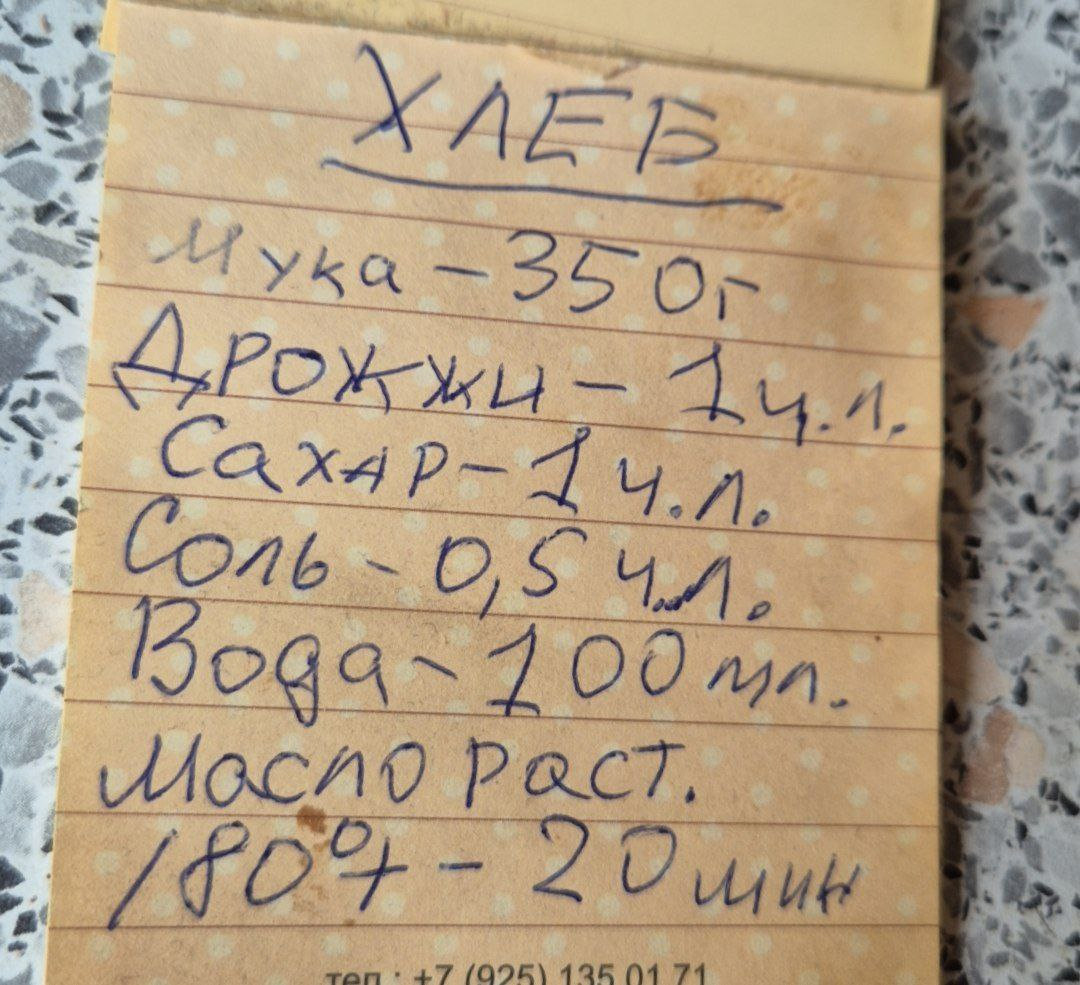 ХЛЕБ
Мука - 350г
Дрожжи - 1 ч.л.
Сахар - 1 ч.л.
Соль - 0,5 ч.л.
Вода - 100 мл.
Масло раст.
180°t - 20 мин
тел.: +7 (925) 135 01 71